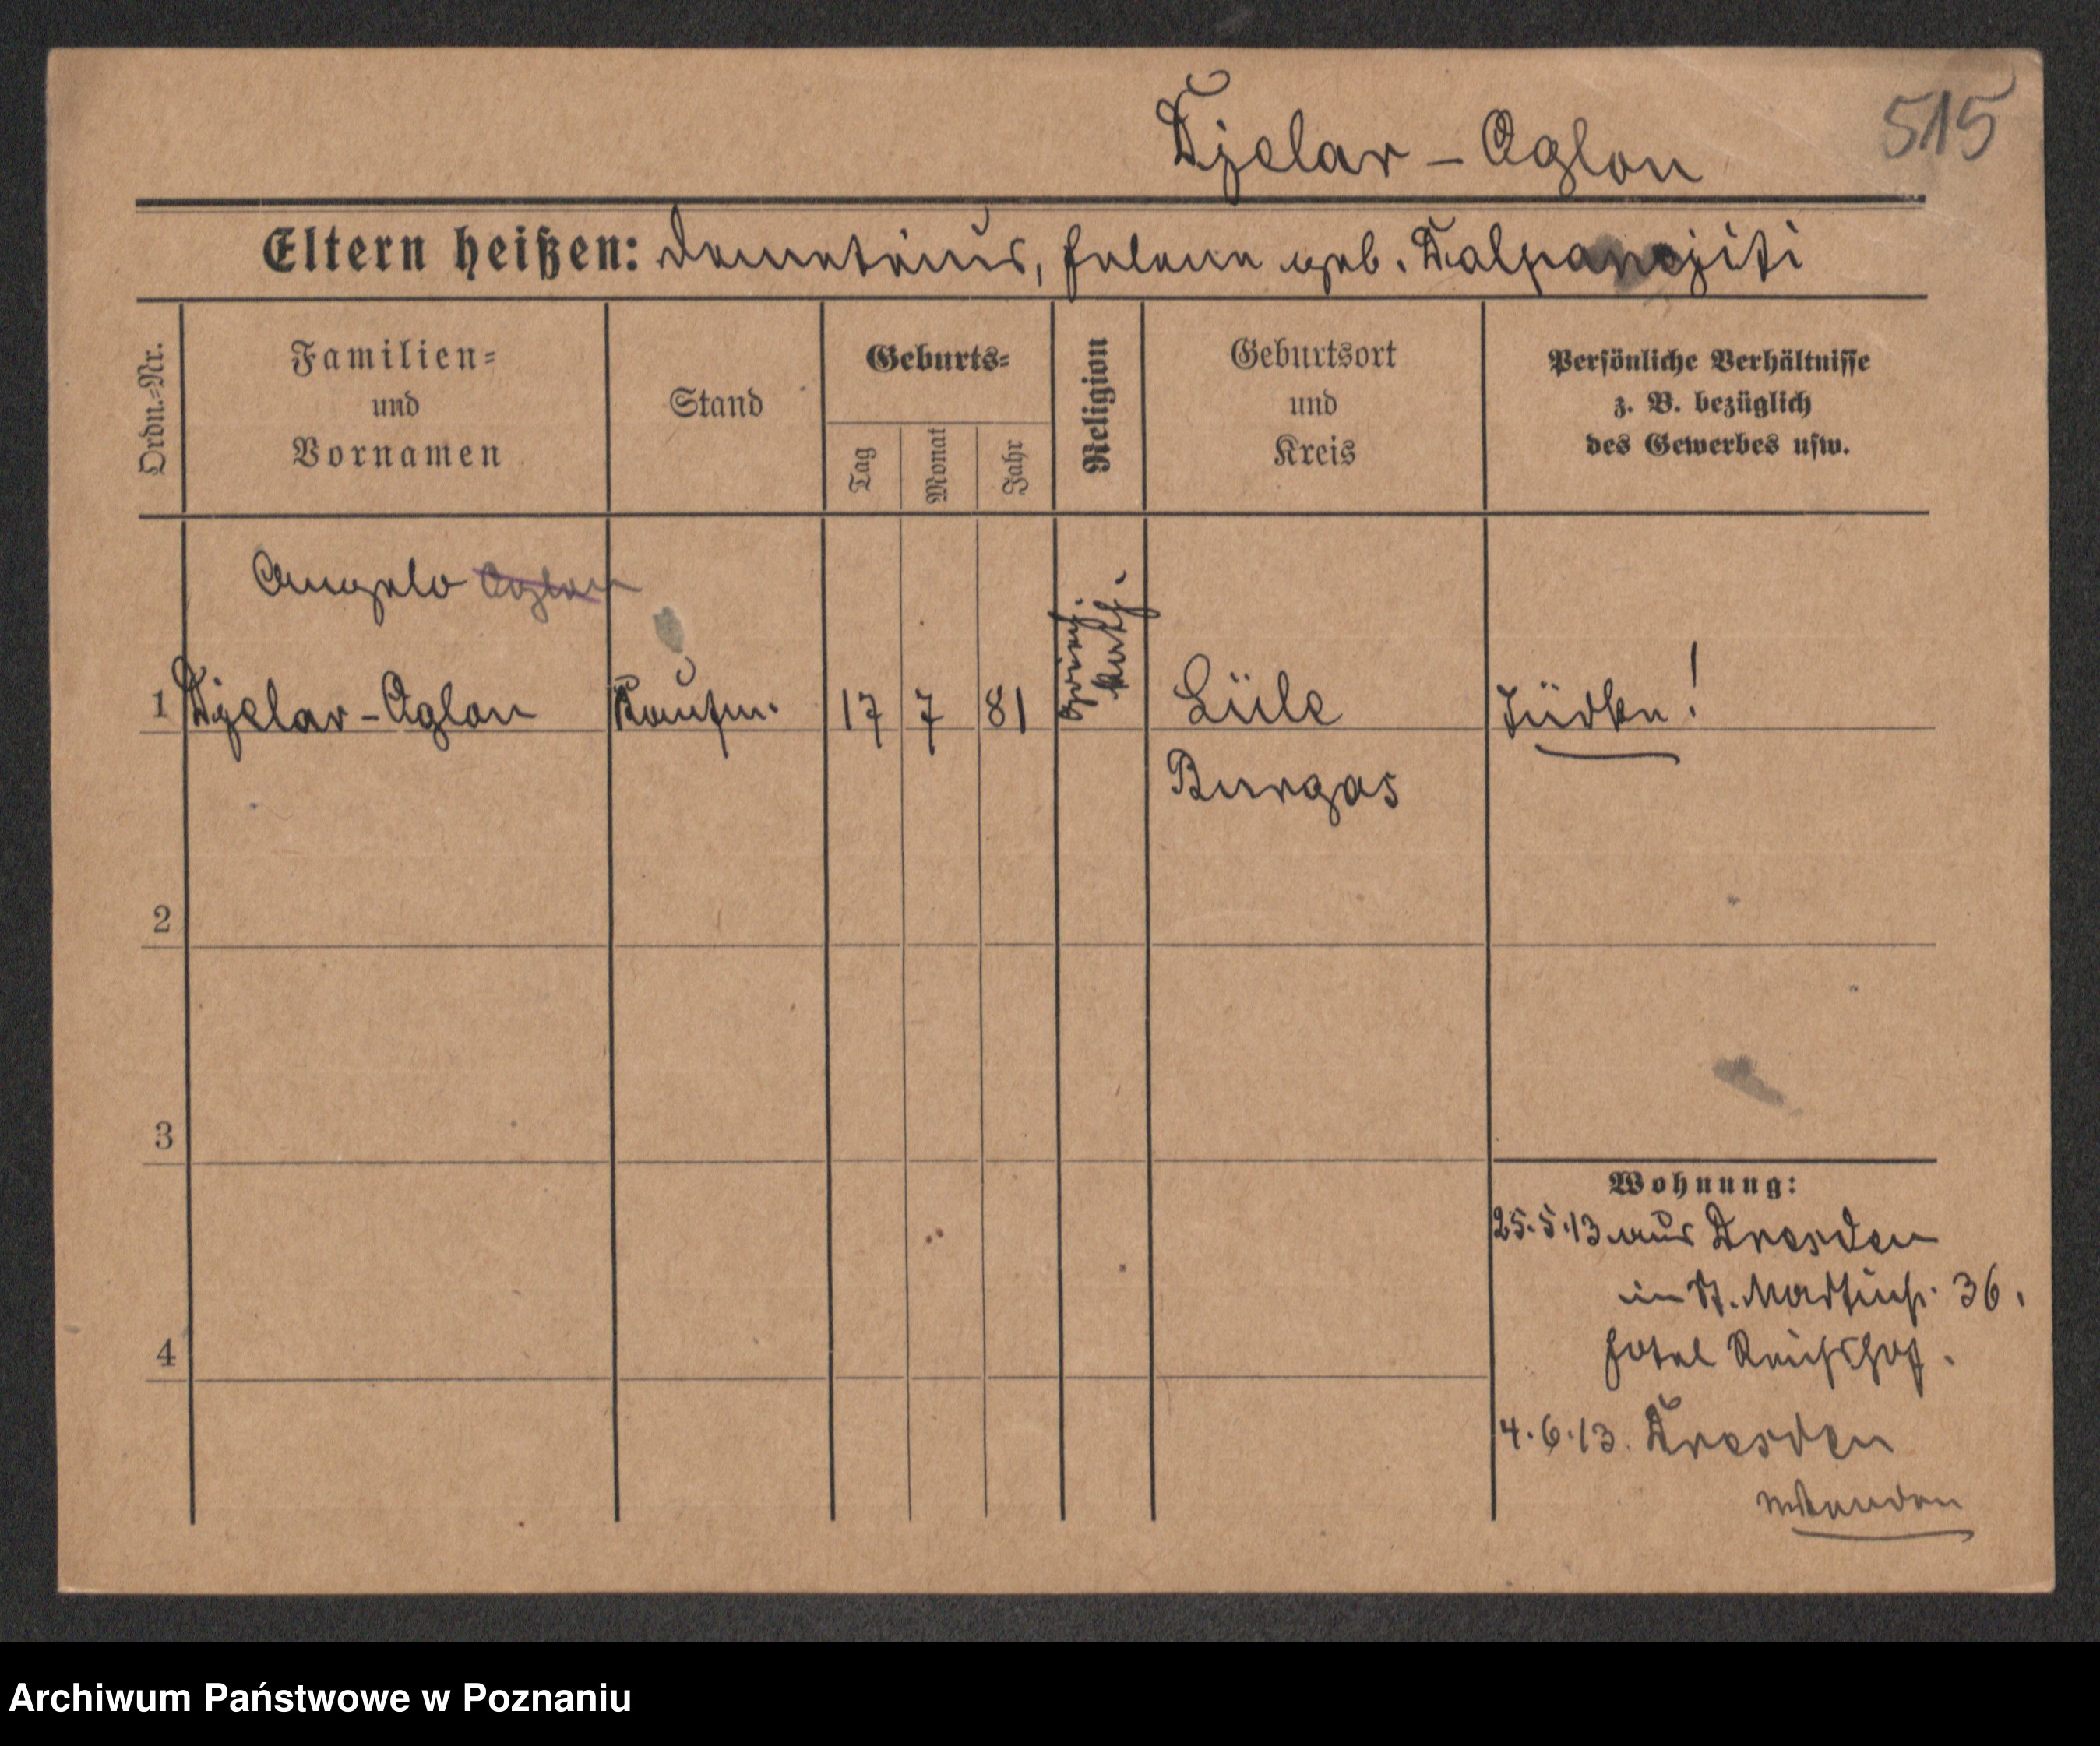 Djelar - Oglou
515
Eltern heißen: Demetrius, Helene geb.
Ordn.=Nr.
Familien=
und
Vornamen
Stand
Geburts=
Tag
Monat
Jahr
Religion
Geburtsort
und
Kreis
Persönliche Verhältnisse
z. B. bezüglich
des Gewerbes usw.
Angelo Oglou
1 Djelar-Oglou Kaufm. 17 7 81 Griech. Kath. Lüle Türkei!
Burgas
2
3
4
Wohnung:
25.5.13 aus Dresden
in St. Martinstr. 36.
Hotel Reichshof.
4.6.13. Dresden
Archiwum Państwowe w Poznaniu